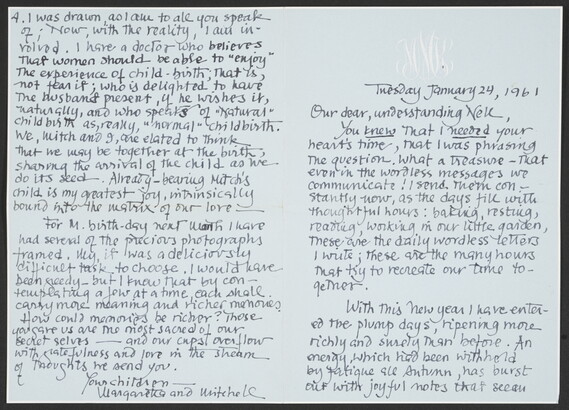 4. I was drawn, as I am to all you speak
of; Now, with the reality, I am in-
volved. I have a doctor who believes
that women should be able to "enjoy"
the experience of child-birth, that is,
not fear it; who is delighted to have
the husband present, if he wishes it,
naturally, and who speaks of "natural"
childbirth as, really, "normal" childbirth.
We, Mitch and I, are elated to think
that we may be together at the birth,
sharing the arrival of the child as we
do its seed. Already - bearing Mitch's
child is my greatest joy, intrinsically
bound into the matrix of our love —
For M. birth-day next month I have
had several of the precious photographs
framed. My, it was a deliciously
difficult task to choose. I would have
been greedy - but I know that by con-
templating a few at a time, each shall
carry more meaning and richer memories
How could memories be richer? Those
you gave us are the most sacred of our
secret selves — and our cups overflow
with gratefulness and love in the stream
of thoughts we send you.
Your children —
Margaretta and Mitchell
MMB
Tuesday January 24, 1961
Our dear, understanding Nell,
You knew that I needed your
heart's time, that I was phrasing
the question. What a treasure - that
even in the wordless messages we
communicate! I send them con-
stantly now, as the days fill with
thoughtful hours: baking, resting,
reading, working in our little garden,
these are the daily wordless letters
I write; these are the many hours
that try to recreate our time to-
gether.
With this new year I have enter-
ed the plump days, ripening more
richly and surely than before. An
energy, which had been withheld
by fatigue all Autumn, has burst
out with joyful notes that seem